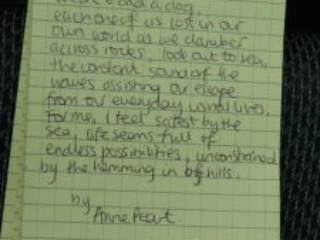 and a dog,
each one of us lost in our
own world as we clamber
across rocks, look out to sea,
the constant sound of the
waves assisting our escape
from our everyday normal lives.
For me, I feel safest by the
sea, life seems full of
endless possibilities, unconstrained
by the hemming in of hills.
by
Anne Peart